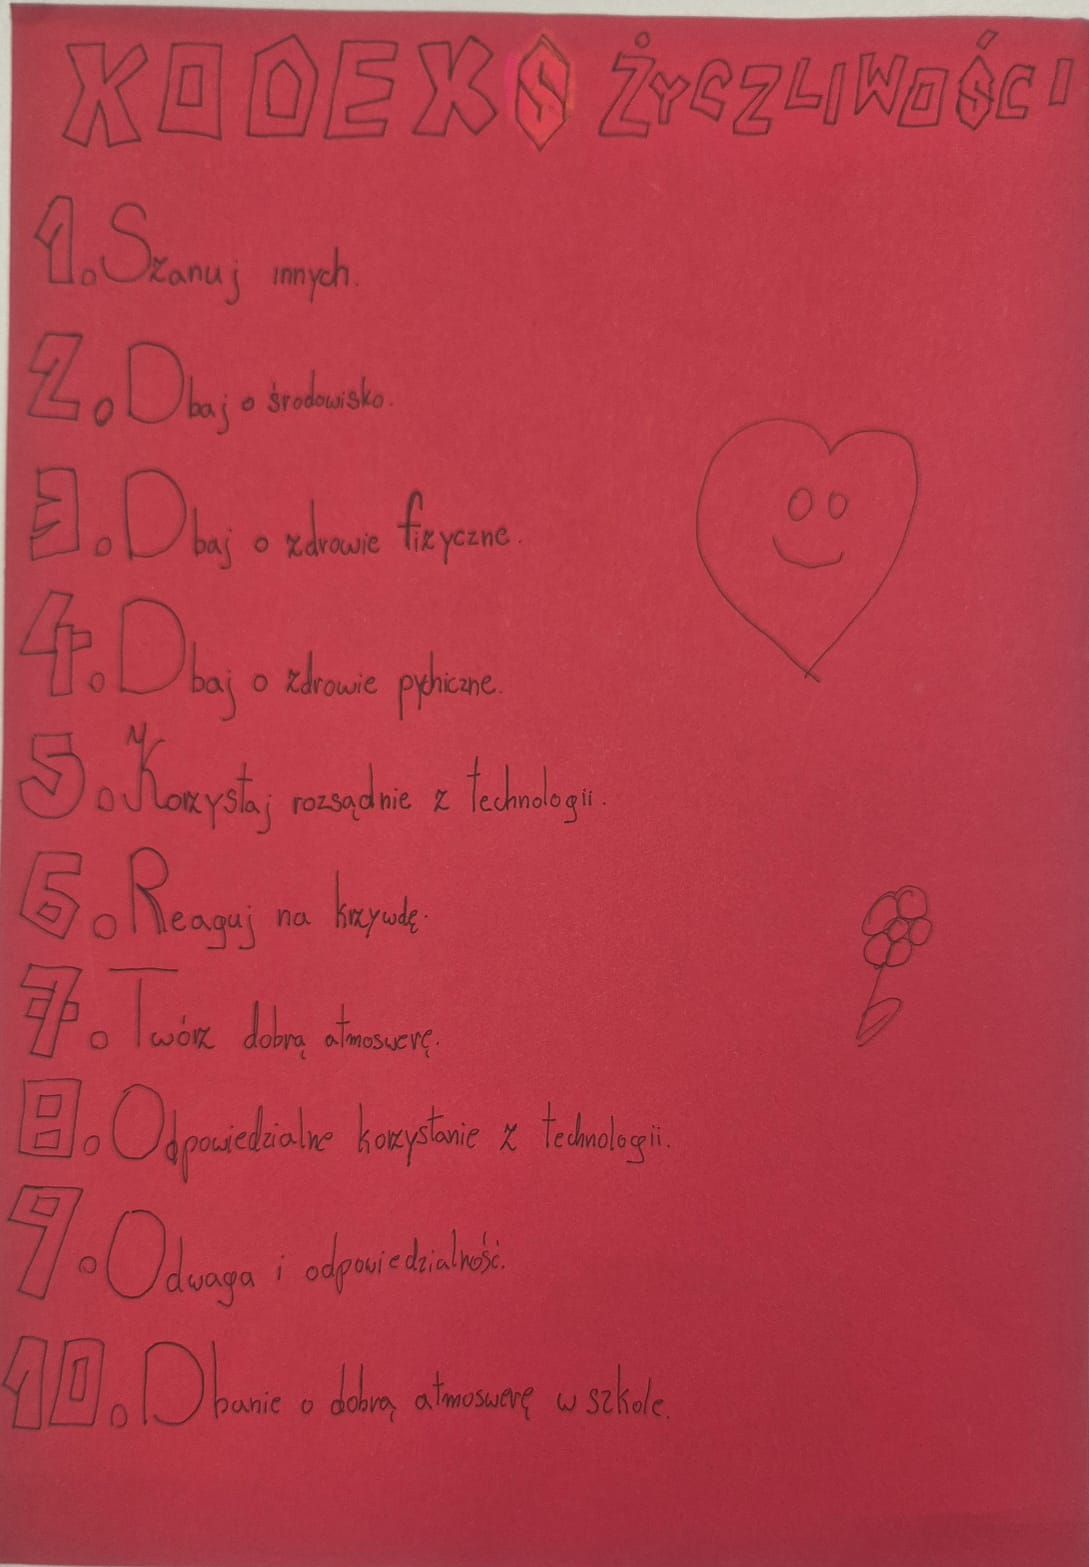 KODEKS ŻYCZLIWOŚCI
1. Szanuj innych.
2. Dbaj o środowisko.
3. Dbaj o zdrowie fizyczne.
4. Dbaj o zdrowie pychiczne.
5. Korzystaj rozsądnie z technologii.
6. Reaguj na krzywdę.
7. Twórz dobrą atmoswerę.
8. Odpowiedzialne korzystanie z technologii.
9. Odwaga i odpowiedzialność.
10. Dbanie o dobrą atmoswerę w szkole.